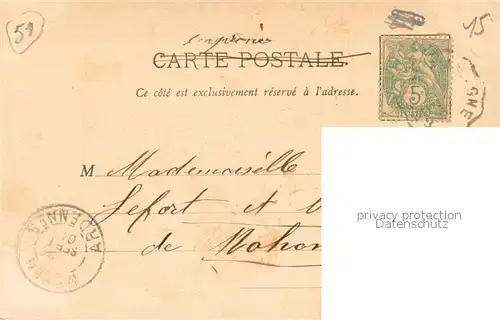 59
15
imprimés
CARTE POSTALE
5
Ce côté est exclusivement réservé à l'adresse.
GNE
M Mademoiselle
Lefort et
de Mohon
ARDENNES
privacy protection
Oldthing